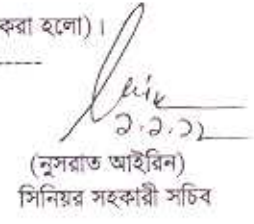 করা হলো)।
২.২.২২
(নুসরাত আইরিন)
সিনিয়র সহকারী সচিব